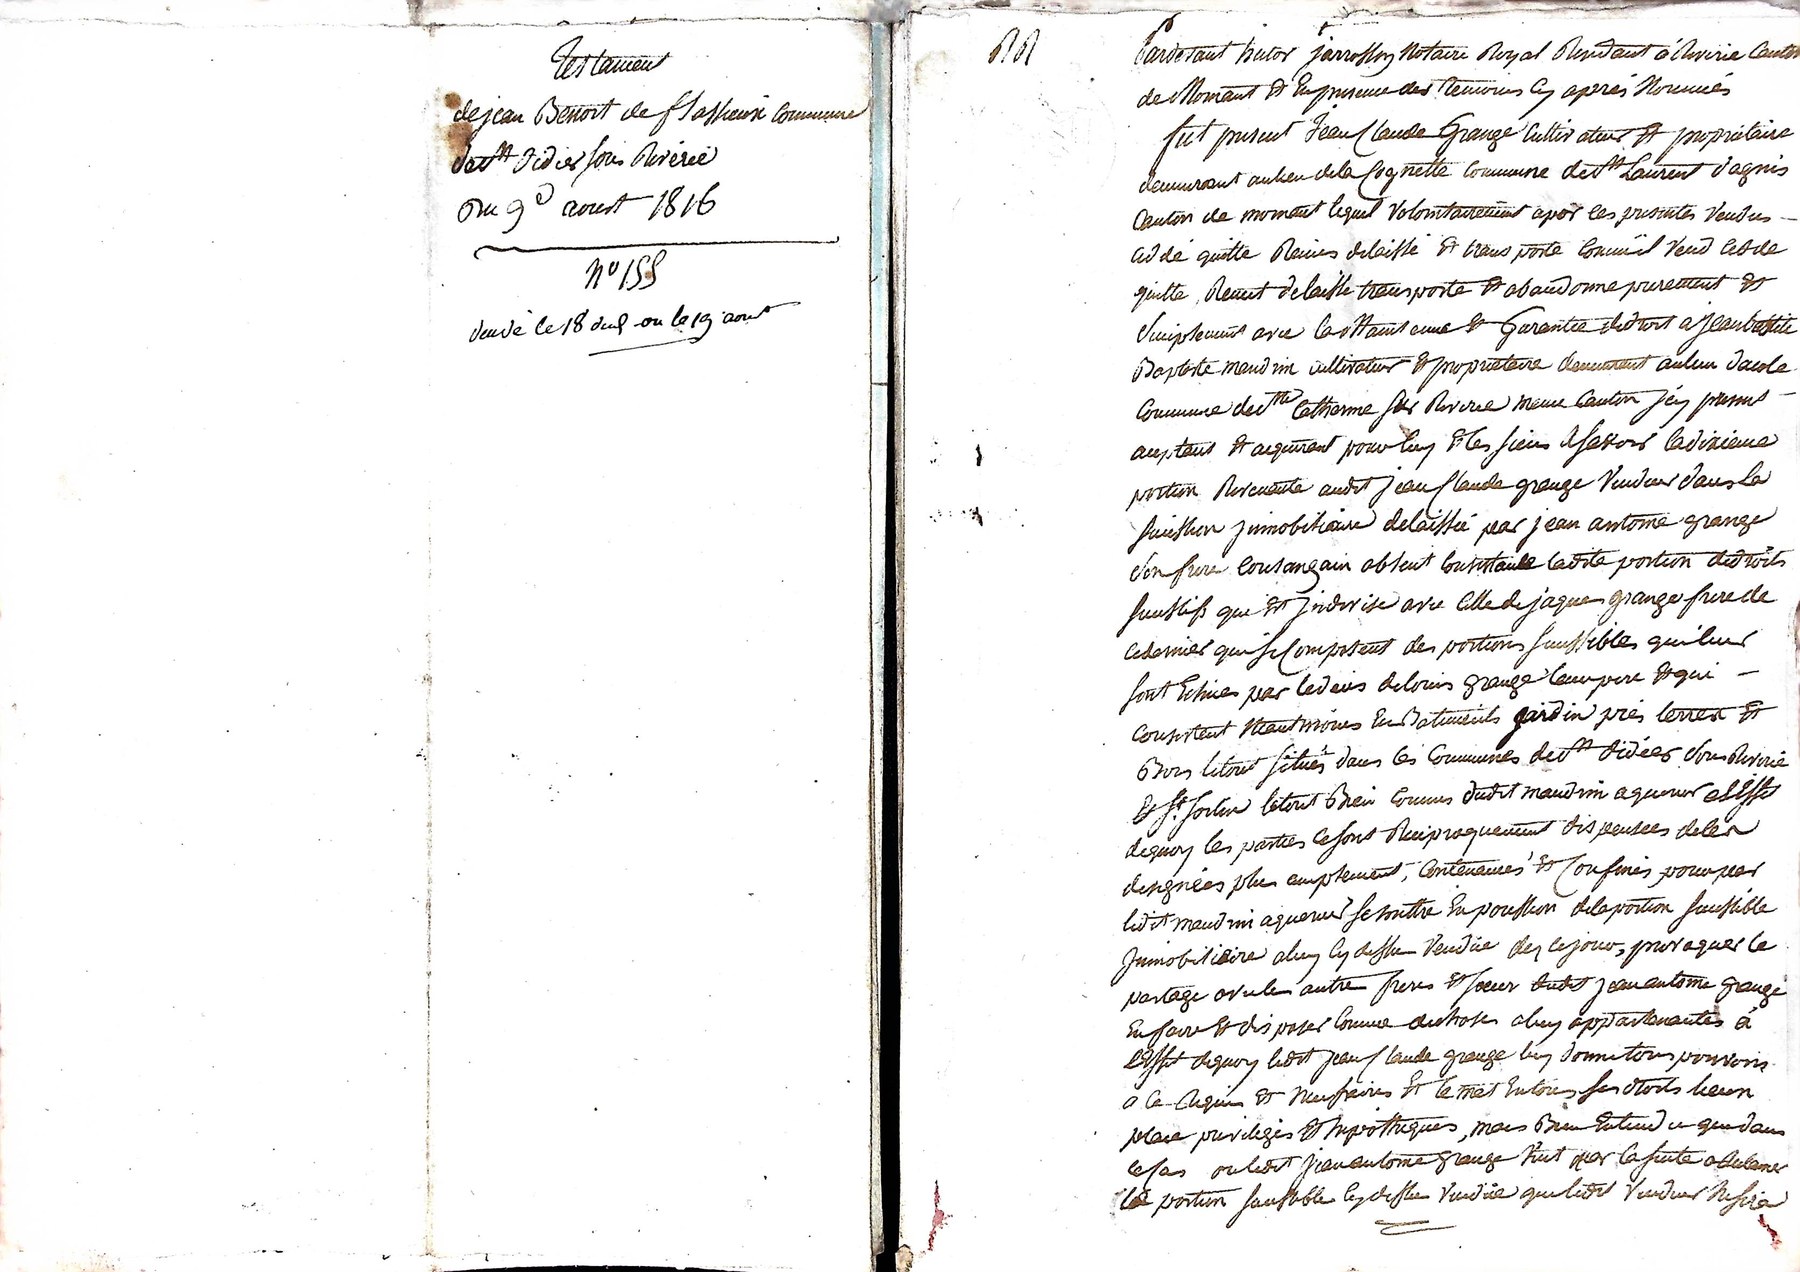 Testament
de jean Benoit de flassieux Commune
de st didier sous Riverie
Du 9e aoust 1816
n° 155
le 18 ou le 19 aout
Pardevant hector jarrosson Notaire Royal Residant à Riverie Canton
de Mornant Et En presence des temoins cy aprés Nommés
fut present Jean Claude Grange Cultivateur Et proprietaire
demeurant au lieu de la Cognette Commune de st Laurent d'agnis
Canton de mornant lequel volontairement apar les presentes Vendus -
ceddé quitte Remis delaissé Et trans porté Comm'il Vend cedde
quitte Remet delaisse transporte Et abandonne purement Et
simplement avec la Maintenue Et Garentie de droit a jean
Baptiste maudrin cultivateur Et proprietaire demeurant au lieu
Commune de ste Catherine sur Riverie meme Canton jcy present -
aceptant Et aquerant pour luy Et les siens Asavoir la dixieme
portion Revenante audit jean Claude grange Vendeur dans la
sucession jmmobiliaire delaissée par jean antoine grange
son frere Consanguin absent ladite portion de droits
sucessifs que Est jndivise avec Celle de jaques grange frere de
ce dernier qui se Compostent des portions sucessibles qui leur
sont Echues par le deces de louis grange leur pere Et qui -
Consistent Neantmoins En Batiments jardin prés terres Et
Bois le tout situés dans les Communes de st didier sous Riverie
Et st sorlin le tout Bien Connus dudit maudrin aquereur a l'Effet
de quoy les parties ce sont Reciproquement dispensées de les
designées plus amplement, Contenances Et Confins, pour par
ledit maudrin aquereur se mettre En possession de la portion sucessible
jmmobiliaire a luy cy dessus Vendue dez ce jour, provoquer le
partage avec les autres freres Et soeur dudit jean antoine grange
En faire Et disposer Comme de choses a luy appartenantes à
L'Effet de quoy ledit jean Claude grange luy donne tous pouvoirs
a ce Requis Et Necessaires Et le met En tous ses droits lieux
place privileges Et hipotheques, mais Bien Entendu que dans
le Cas ou ledit jean antoine grange Vint par la suite a Reclamer
la portion sucessible cy dessus Vendue que ledit Vendeur Ne sera